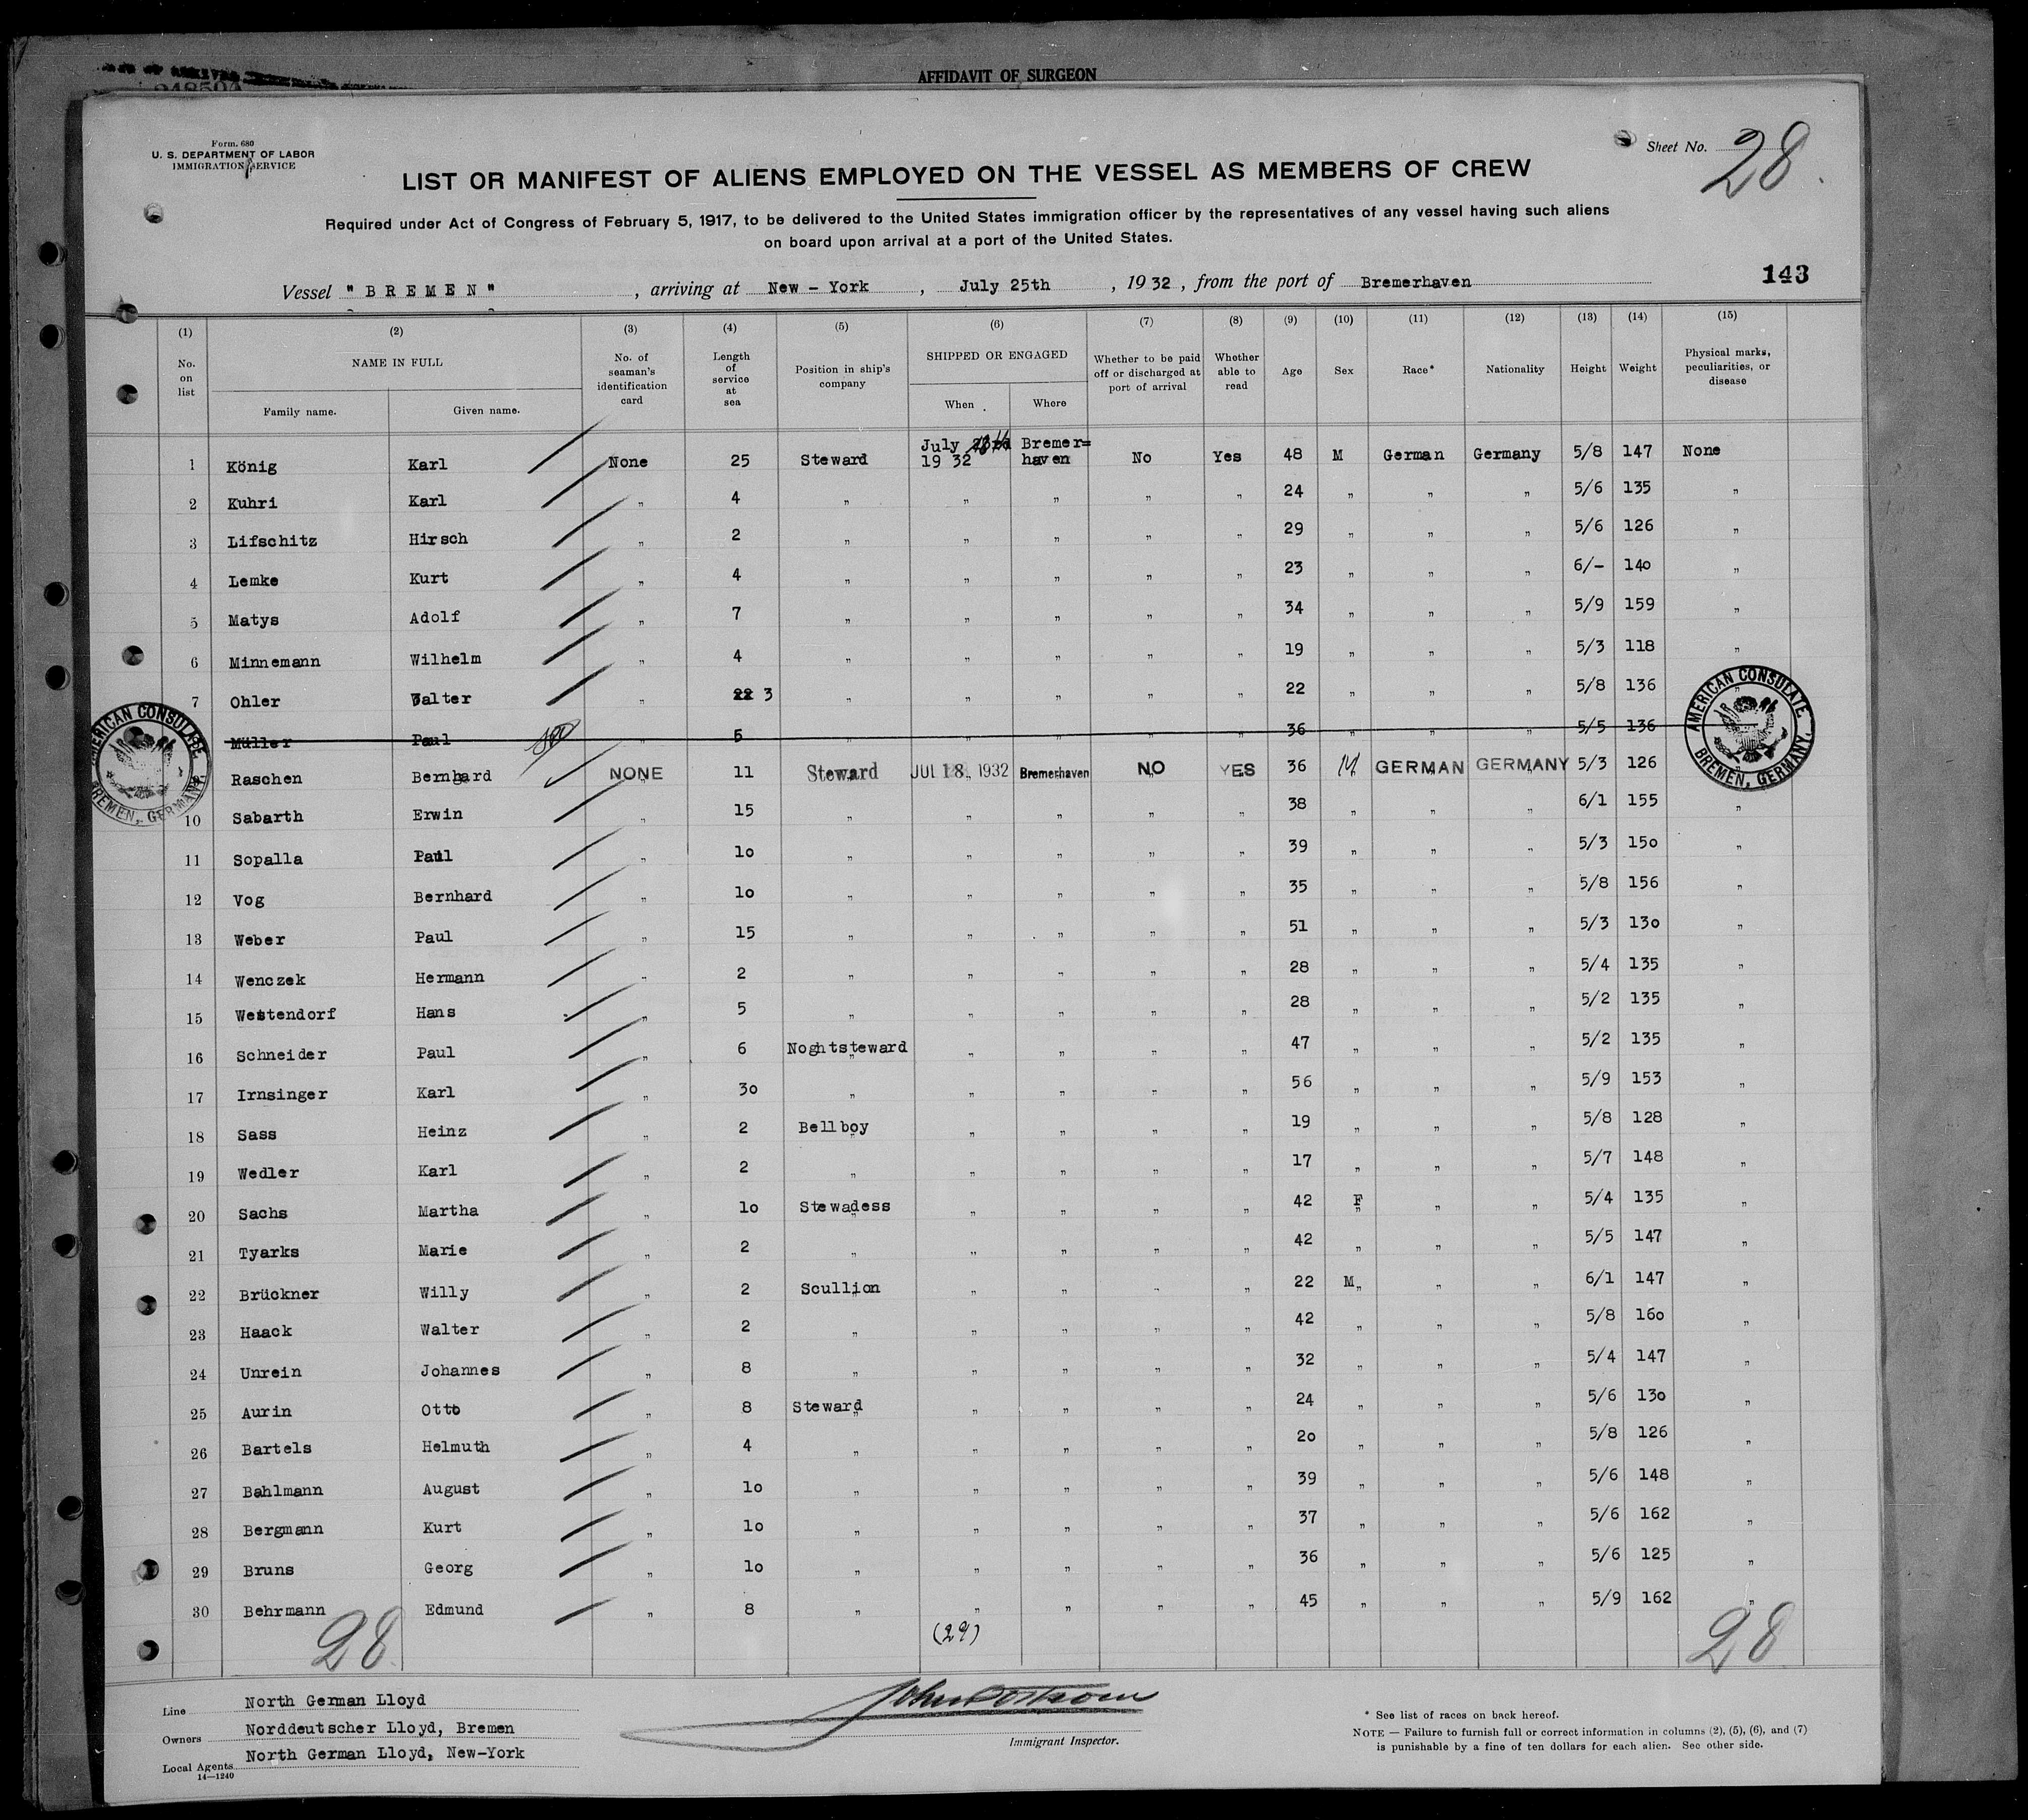 AFFIDAVIT OF SURGEON
Form. 680
U. S. DEPARTMENT OF LABOR
IMMIGRATION SERVICE
Sheet No. 28.
LIST OR MANIFEST OF ALIENS EMPLOYED ON THE VESSEL AS MEMBERS OF CREW
Required under Act of Congress of February 5, 1917, to be delivered to the United States immigration officer by the representatives of any vessel having such aliens
on board upon arrival at a port of the United States.
143
Vessel "BREMEN", arriving at New - York, July 25th, 1932, from the port of Bremerhaven
(1) (2) (3) (4) (5) (6) (7) (8) (9) (10) (11) (12) (13) (14) (15)
No. on list NAME IN FULL No. of seaman's identification card Length of service at sea Position in ship's company SHIPPED OR ENGAGED Whether to be paid off or discharged at port of arrival Whether able to read Age Sex Race* Nationality Height Weight Physical marks, peculiarities, or disease
Family name. Given name. When. Where
1 König Karl None 25 Steward July 18th 1932 Bremer=haven No Yes 48 M German Germany 5/8 147 None
2 Kuhri Karl " 4 " " " " " 24 " " " 5/6 135 "
3 Lifschitz Hirsch " 2 " " " " " 29 " " " 5/6 126 "
4 Lemke Kurt " 4 " " " " " 23 " " " 6/- 140 "
5 Matys Adolf " 7 " " " " " 34 " " " 5/9 159 "
6 Minnemann Wilhelm " 4 " " " " " 19 " " " 5/3 118 "
7 Ohler Walter " 22 3 " " " " " 22 " " " 5/8 136 "
Müller Paul " 5 " " " " " 36 " " " 5/5 136
Raschen Bernhard NONE 11 Steward JUL 18. 1932 Bremerhaven NO YES 36 M GERMAN GERMANY 5/3 126
10 Sabarth Erwin " 15 " " " " " 38 " " " 6/1 155 "
11 Sopalla Paul " 10 " " " " " 39 " " " 5/3 150 "
12 Vog Bernhard " 10 " " " " " 35 " " " 5/8 156 "
13 Weber Paul " 15 " " " " " 51 " " " 5/3 130 "
14 Wenczek Hermann " 2 " " " " " 28 " " " 5/4 135 "
15 Westendorf Hans " 5 " " " " " 28 " " " 5/2 135 "
16 Schneider Paul " 6 Noghtsteward " " " " 47 " " " 5/2 135 "
17 Irnsinger Karl " 30 " " " " " 56 " " " 5/9 153 "
18 Sass Heinz " 2 Bellboy " " " " 19 " " " 5/8 128 "
19 Wedler Karl " 2 " " " " " 17 " " " 5/7 148 "
20 Sachs Martha " 10 Stewadess " " " " 42 F " " 5/4 135 "
21 Tyarks Marie " 2 " " " " " 42 " " " 5/5 147 "
22 Brückner Willy " 2 Scullion " " " " 22 M " " 6/1 147 "
23 Haack Walter " 2 " " " " " 42 " " " 5/8 160 "
24 Unrein Johannes " 8 " " " " " 32 " " " 5/4 147 "
25 Aurin Otto " 8 Steward " " " " 24 " " " 5/6 130 "
26 Bartels Helmuth " 4 " " " " " 20 " " " 5/8 126 "
27 Bahlmann August " 10 " " " " " 39 " " " 5/6 148 "
28 Bergmann Kurt " 10 " " " " " 37 " " " 5/6 162 "
29 Bruns Georg " 10 " " " " " 36 " " " 5/6 125 "
30 Behrmann Edmund " 8 " " " " " 45 " " " 5/9 162 "
AMERICAN CONSULATE
BREMEN, GERMANY
AMERICAN CONSULATE
BREMEN, GERMANY.
28 (29) 28
Line North German Lloyd
Owners Norddeutscher Lloyd, Bremen
Local Agents North German Lloyd, New-York
14—1240
Immigrant Inspector.
* See list of races on back hereof.
NOTE — Failure to furnish full or correct information in columns (2), (5), (6), and (7)
is punishable by a fine of ten dollars for each alien. See other side.